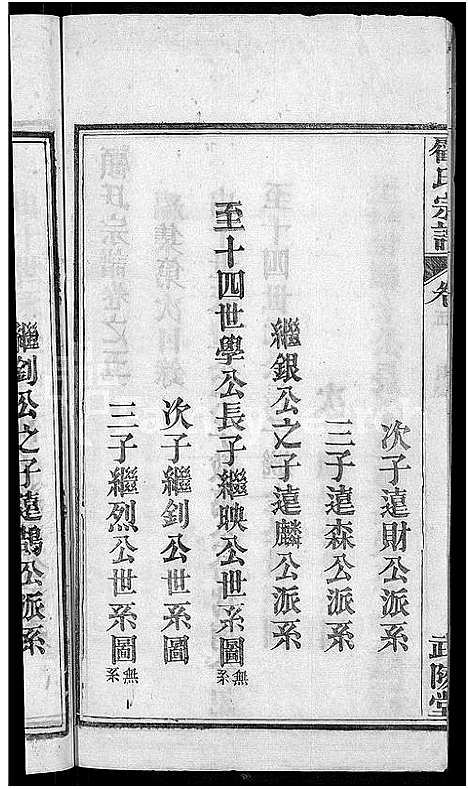 顧氏宗譜
卷
武陵堂
次子遠財公派系
三子遠森公派系
繼銀公之子遠麟公派系
至十四世學公長子繼映公世系圖無系
次子繼釗公世系圖
三子繼烈公世系圖無系
繼釗公之子遠鵲公派系